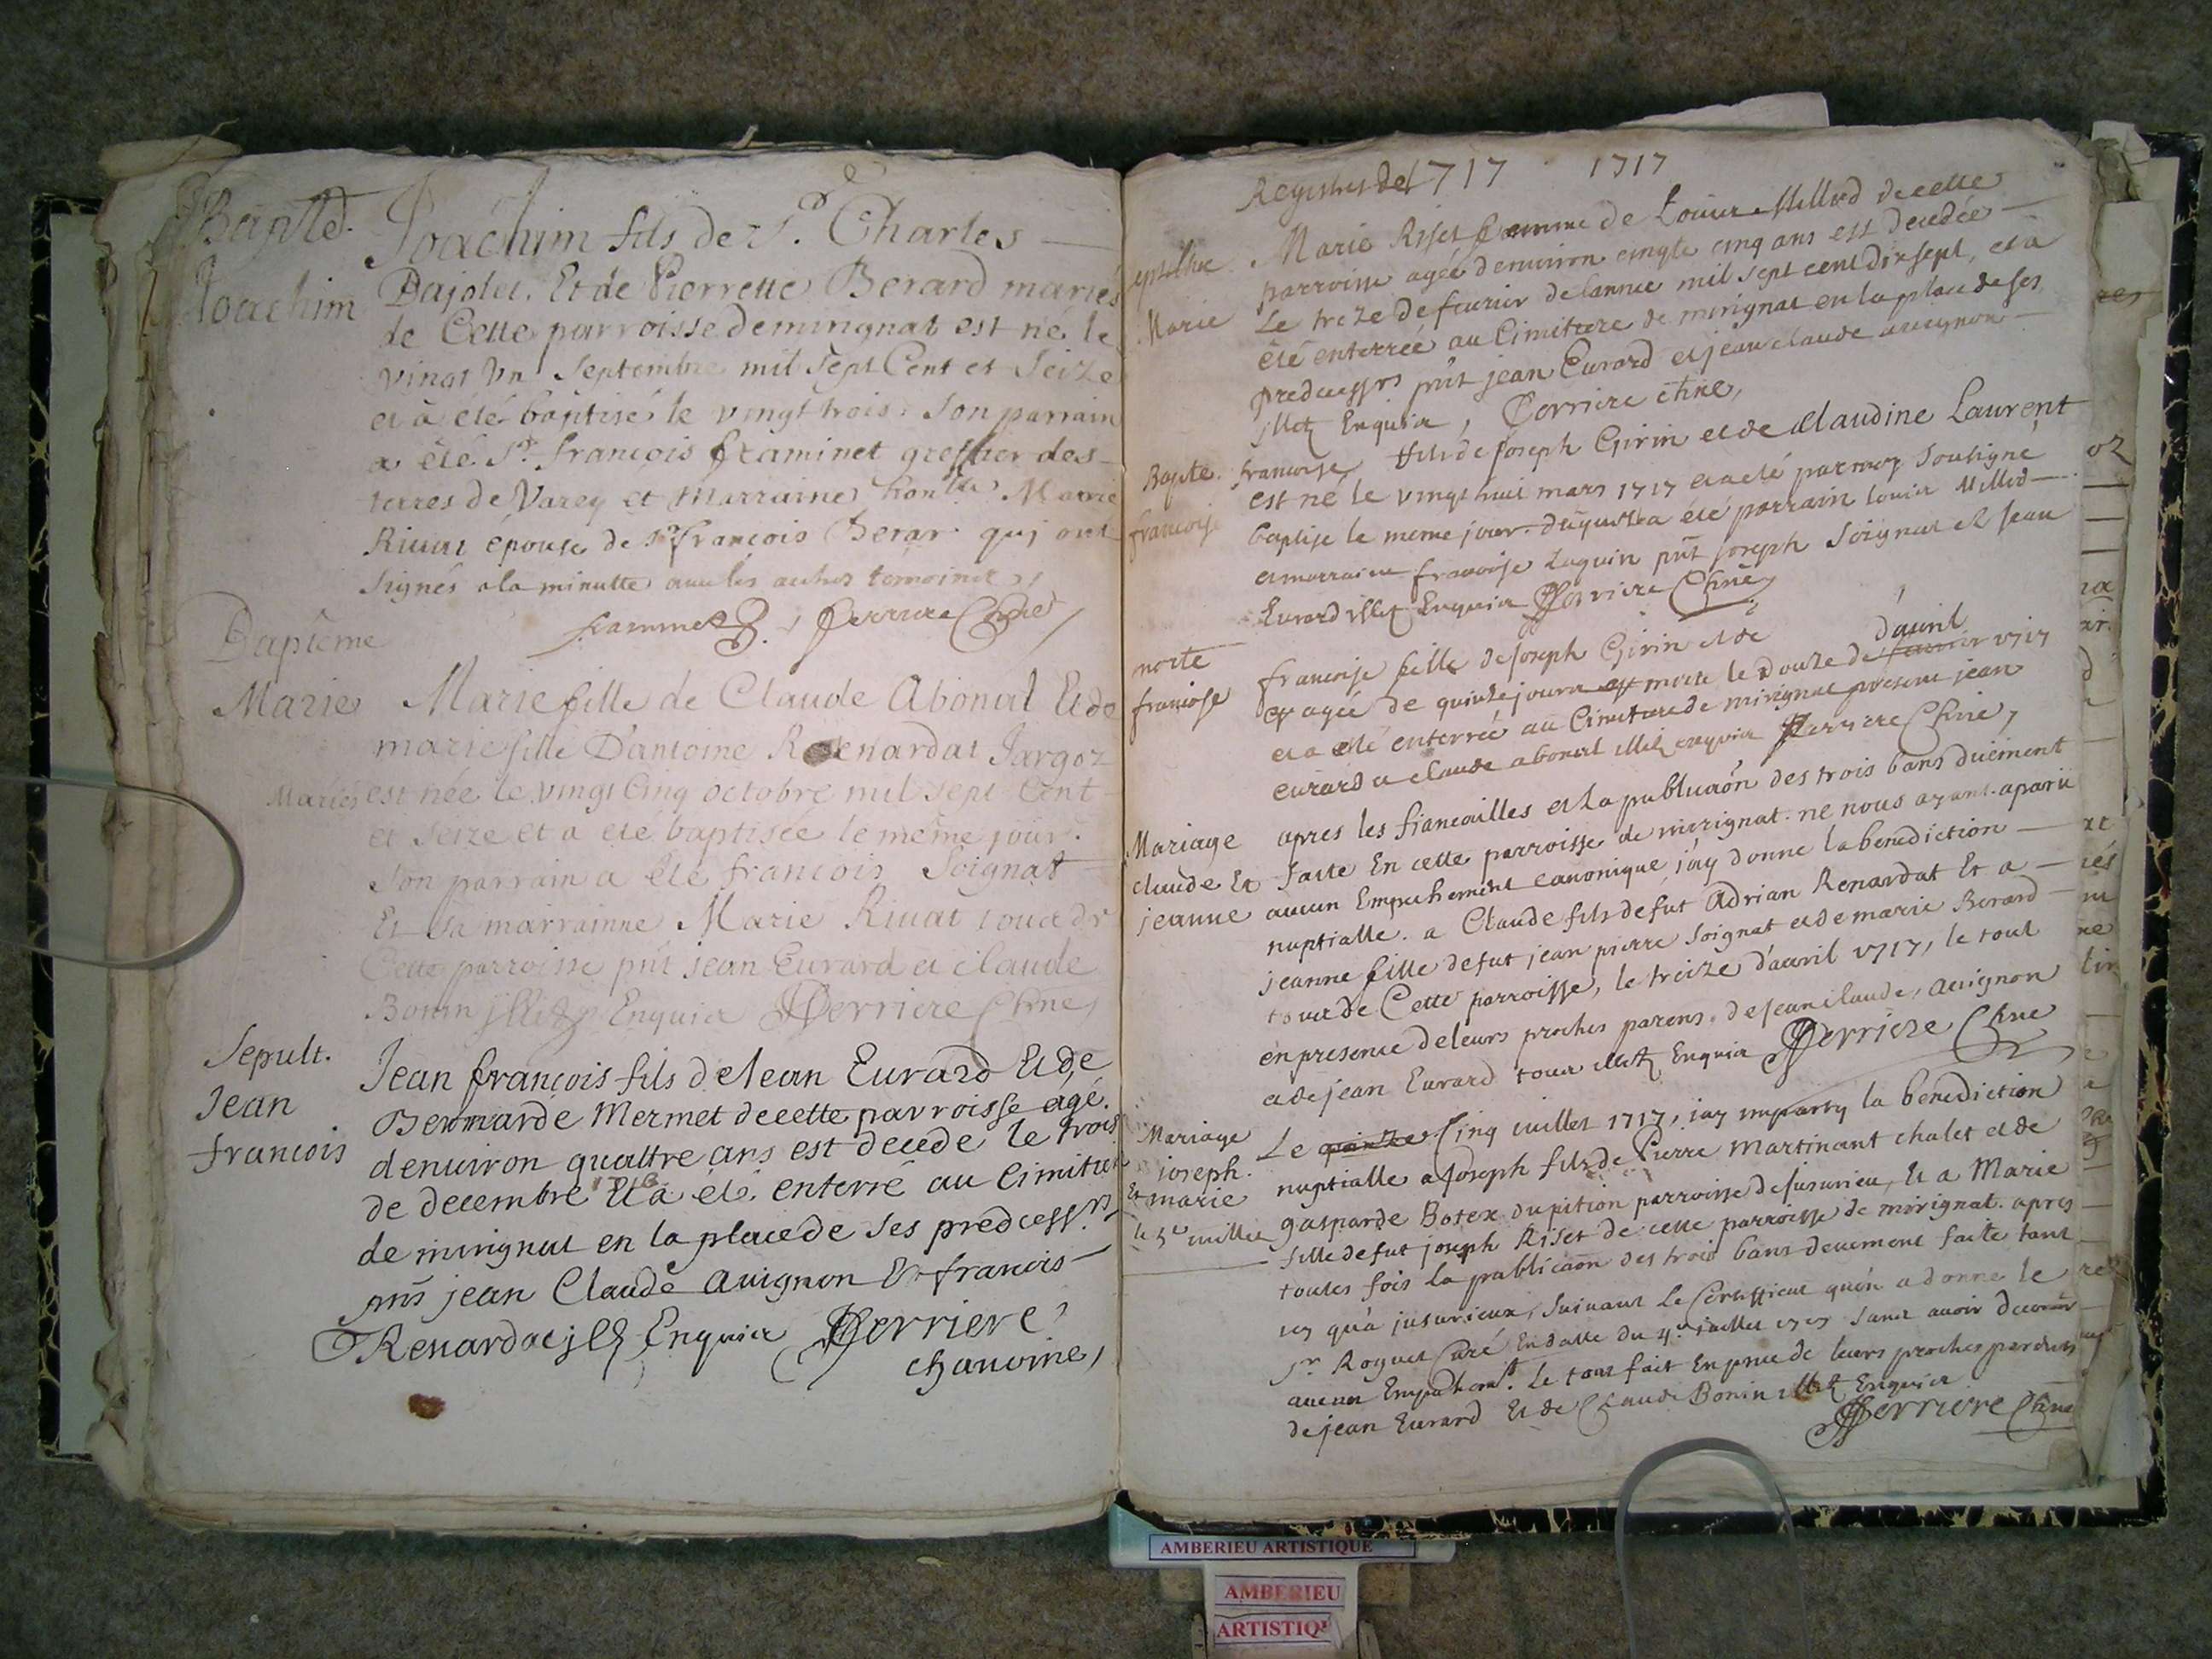 Baptê.
Joachim
Joachim fils de Sr. Charles
Dajolet. Et de Pierrette Berard mariés
de Cette parroisse de mirignat est né le
vingt un Septembre mil sept Cent et Seize
et a été baptisé le vingt trois. Son parrain
a été Sr. françois framinet greffier des
terres de Varey et Marraine Marie
Riuat épouse de Sr françois Berar qui ont
signés a la minutte auec les autres temoins,
framinet, ferriere Chne
Baptême
Marie
Mariés
Marie fille de Claude Abonat Et de
marie fille D'antoine Renardat Jargoz
est née le vingt Cinq octobre mil sept Cent
et seize et a été baptisée le même jour.
Son parrain a été francois Soignat
Et Sa marrainne Marie Riuat tous de
Cette parroisse pnt jean Eurard et claude
Bonin illet Enquis ferriere Chne,
Sepult.
Jean
francois
Jean françois fils de Jean Eurard Et de
Bernnarde Mermet de cette parroisse agé
denuiron quattre ans est decede le trois
de decembre 1716 Et a été enterré au Cimitiere
de mirignat en la place de ses predcessrs
pns jean Claude auignon Et francois
Renardat Enquis ferriere
chanoine,
Registres de 1717 1717
Marie
Marie Riset femme de Louis Millod de cette
parroisse agée denuiron cingte cinq ans est decedée
Le treze de feurier de lannee mil sept cent dix sept, et a
été enterrée au Cimitiere de mirignat en la place de ses
predcessrs pnt jean Eurard et jean claude auignon
illet Enquis, ferriere chne,
Bapte.
francoise
francoise fille de Joseph Girin et de Claudine Laurent
est né le vingt huit mars 1717 et a eté par moy Sousigné
baptise le meme jour. duquel a été parrain louis Millod
et marraine francoise Luquin pnt joseph Soignat et Jean
Eurard illet Enquis ferriere Chne
morte
francoise
francoise fille de Joseph Girin et de
agée de quinze jours est morte le Douze de feurier d'auril 1717
et a eté enterrée au Cimetiere de mirignat present jean
eurard et claude abonat illet enquis ferriere Chne,
Mariage
claude Et
jeanne
apres les fiancailles et la publicaon des trois bans duëment
faitte En cette parroisse de mirignat. ne nous ayant aparu
aucun Empechement canonique, j'ay donne la benediction
nuptialle. a Claude fils de fut Adrian Renardat Et a
jeanne fille de fut jean pierre Soignat et de marie Berard
tous de Cette parroisse, le treize d'auril 1717, le tout
en presence de leurs proches parens. de Jean claude auignon
et de jean Eurard tous illet Enquis ferriere Chne
Mariage
joseph.
Et marie
le 5e iuillet
Le quinze Cinq iuillet 1717, iay imparty la benediction
nuptialle a Joseph fils de Pierre Martinant chalet et de
gasparde Botex du pition parroisse de Jusurieu, Et a Marie
fille de fut joseph Riset de cette parroisse de mirignat. apres
toutes fois la publicaon des trois bans deuement faite tant
icy qu'à jusurieux, suiuant Le Certifficat quen a donné le
Sr Roguet Curé En datte du 4e juillet 1717 sans auoir decouuert
aucun Empechemt. Le tout fait En pnce de leurs proches parens
de jean Eurard Et de Claude Bonin illet Enquis
ferriere Chne
AMBERIEU ARTISTIQUE
AMBERIEU
ARTISTIQU